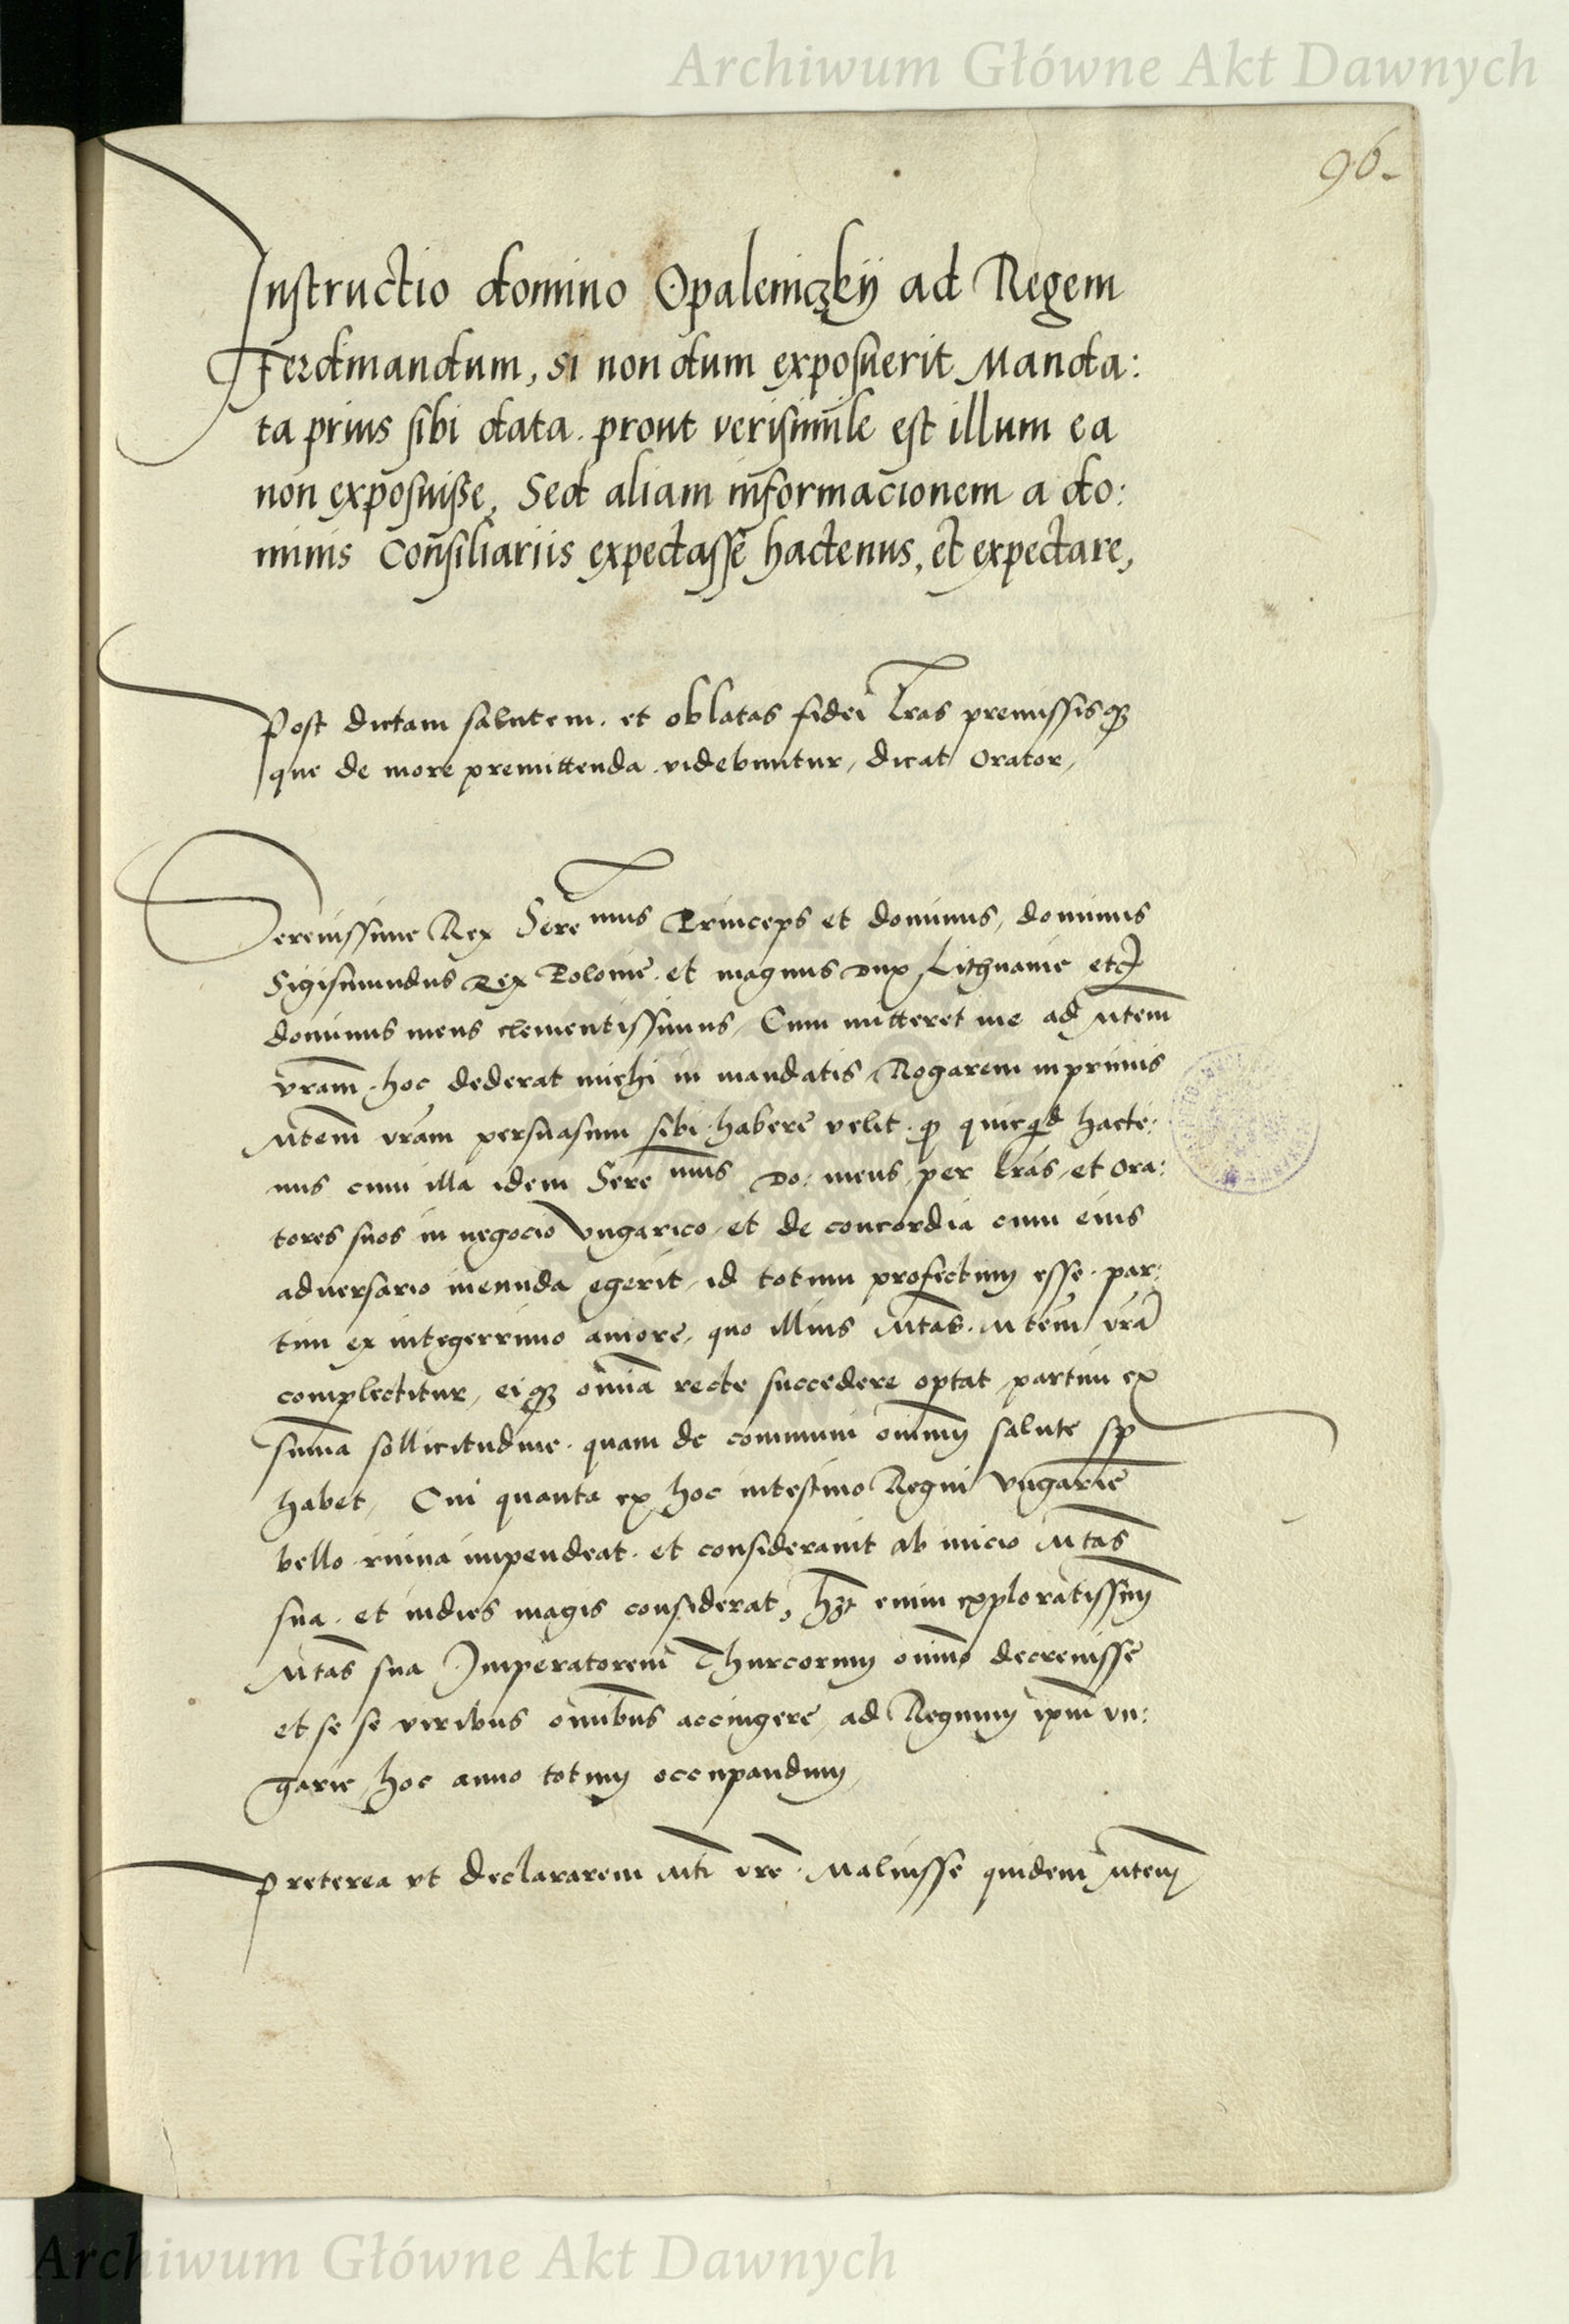 Archiwum Główne Akt Dawnych
96.
Instructio domino Opaleniczkÿ ad Regem
Ferdinandum, si non dum exposuerit Manda:
ta prius sibi data. prout verisimile est illum ea
non exposuisse, Sed aliam informacionem a do:
minis Consiliariis expectasse hactenus, et expectare,
Post dictam salutem. et oblatas fidei lras premissisqз
que de more premittenda videbuntur, dicat Orator,
Serenissime Rex Serenmus Princeps et dominus, dominus
Sigismundus Rex Polonie. et magnus Dux Lithuanie etc
dominus meus clementissimus, Cum mitteret me ad Mtem
vram. hoc dederat michi in mandatis, Rogarem inprimis
Mtem vram persuasum sibi habere velit. q quicqd hacte:
nus cum illa idem Serenmus Do: meus per lras, et ora:
tores suos in negocio Vngarico, et de concordia cum eius
aduersario ineunda egerit, id totum profectum esse. par:
tim ex integerrimo amore, quo illius Mtas. Mtem vra
complectitur, eiqз omia recte succedere optat, partim ex
suma sollicitudine. quam de communi omium salute sp
habet, Cui quanta ex hoc intestino Regni Vngarie
bello ruina impendeat. et considerauit ab inicio Mtas
sua. et indies magis considerat, hзt enim exploratissim
Mtas sua Imperatorem Thurcorum omino decreuisse
et se se viribus omibus accingere, ad Regnum ipm Vn:
garie, hoc anno totum occupandum,
Preterea vt declararem Mti vre. Maluisse quidem Mtem
Archiwum Główne Akt Dawnych